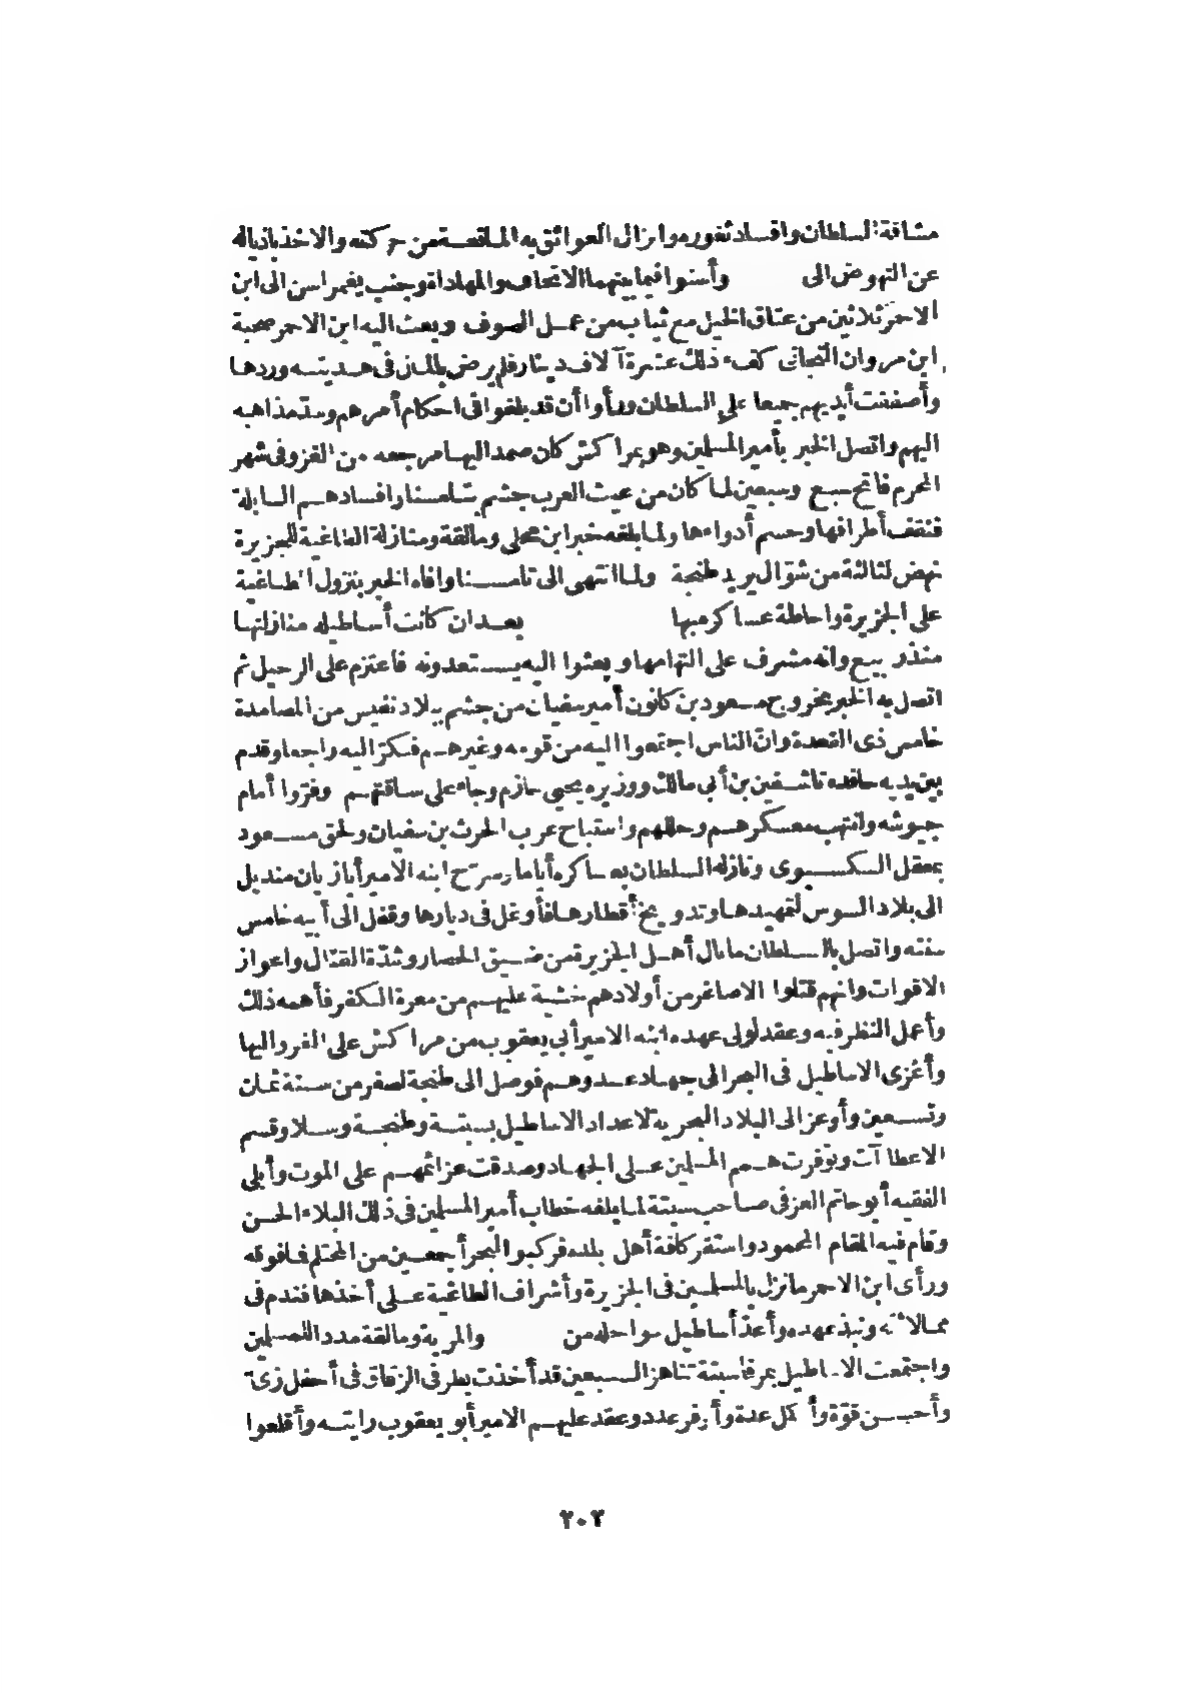 مشاقة السلطان وافساد ثغوره وانزال العوائق به المانعة من حركته والاخذ باذياله
عن النهوض الى وأسنوا فيما بينهما الاتحاف والمهاداة وجنب يغمراسن الى ابن
الاحمر ثلاثين من عتاق الخيل مع ثياب من عمل الصوف وبعث اليه ابن الاحمر صحبة
ابن مروان التجانى كفء ذلك عشرة آلاف دينار فلم يرض بالمال فى هديته وردها
وأصفقت أيديهم جميعا على السلطان ورأوا أن قد بلغوا فى احكام أمرهم وسد مذاهبه
اليهم واتصل الخبر بأمير المسلمين وهو بمراكش كان صمد اليها مرجعه من الغزو فى شهر
المحرم فاتح سبع وسبعين لما كان من عيث العرب جشم بتامسنا وافسادهم السابلة
فثقف أطرافها وحسم أدواءها ولما بلغه خبر ابن محلى ومالقة ومنازلة الطاغية للجزيرة
نهض لثالثة من شوال يريد طنجة ولما انتهى الى تامسنا وافاه الخبر بنزول الطاغية
على الجزيرة واحاطة عساكره بها بعد ان كانت أساطيله منازلتها
منذ ربيع وانه مشرف على التهامها وبعثوا اليه يستعدونه فاعتزم على الرحيل ثم
اتصل به الخبر بخروج مسعود بن كانون أمير سفيان من جشم ببلاد نفيس من المصامدة
خامس ذى القعدة وان الناس اجتمعوا اليه من قومه وغيرهم فكر اليه واجعا وقدم
بين يديه حافده تاشفين بن أبى مالك ووزيره يحيى حازم وجاء على ساقتهم وفروا أمام
جيوشه وانتهب معسكرهم وحللهم واستباح عرب الحرث بن سفيان ولحق مسعود
بمعقل السكسيوى ونازله السلطان بعساكره أياما وسرح ابنه الامير أبا زيان منديل
الى بلاد السوس لتمهيدها وتدويخ أقطارها فأوغل فى ديارها وقفل الى أبيه خامس
سنته واتصل بالسلطان ما نال أهل الجزيرة من ضيق الحصار وشدة القتال واعواز
الاقوات وانهم قتلوا الاصاغر من أولادهم خشية عليهم من معرة الكفر فأهمه ذلك
وأعمل النظر فيه وعقد لولى عهده ابنه الامير أبى يعقوب من مراكش على الغزو اليها
وأغزى الاساطيل فى البحر الى جهاد عدوهم فوصل الى طنجة لصفر من سنة ثمان
وتسعين وأوعز الى البلاد البحرية لاعداد الاساطيل بسبتة وطنجة وسلا وقسم
الاعطاآت وتوفرت همم المسلمين على الجهاد وصدقت عزائمهم على الموت وأبلى
الفقيه أبو حاتم العزفى صاحب سبتة لما بلغه خطاب أمير المسلمين فى ذلك البلاء الحسن
وقام فيه المقام المحمود واستفر كافة أهل بلده فركبوا البحر أجمعين من المحتلم فما فوقه
ورأى ابن الاحمر ما نزل بالمسلمين فى الجزيرة وأشراف الطاغية على أخذها فندم فى
ممالاته ونبذ عهده وأعد أساطيل سواحله من والمرية ومالقة مددا للمسلمين
واجتمعت الاساطيل بمرفا سبتة تناهز السبعين قد أخذت بطرفى الزقاق فى أحفل زى
وأحسن قوة وأكمل عدة وأوفر عدد وعقد عليهم الامير أبو يعقوب رايته وأقلعوا
٢٠٣